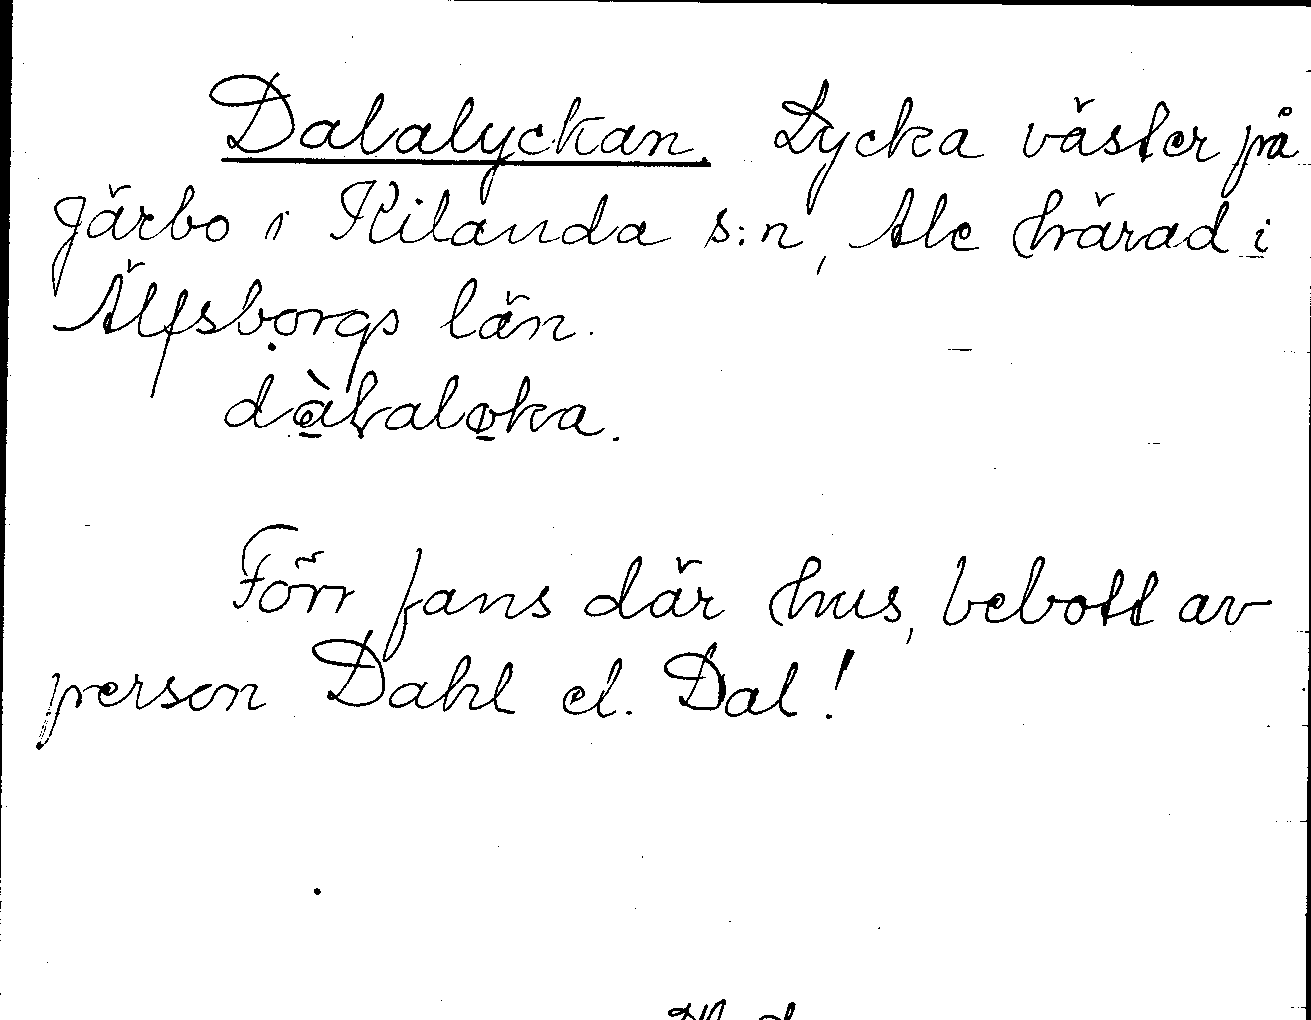 Dalalyckan. Lycka väster på
Järbo i Kilanda s:n, Ale härad i
Älfsborgs län.
dàlaloka.
Förr fans där hus, bebott av
person Dahl el. Dal!